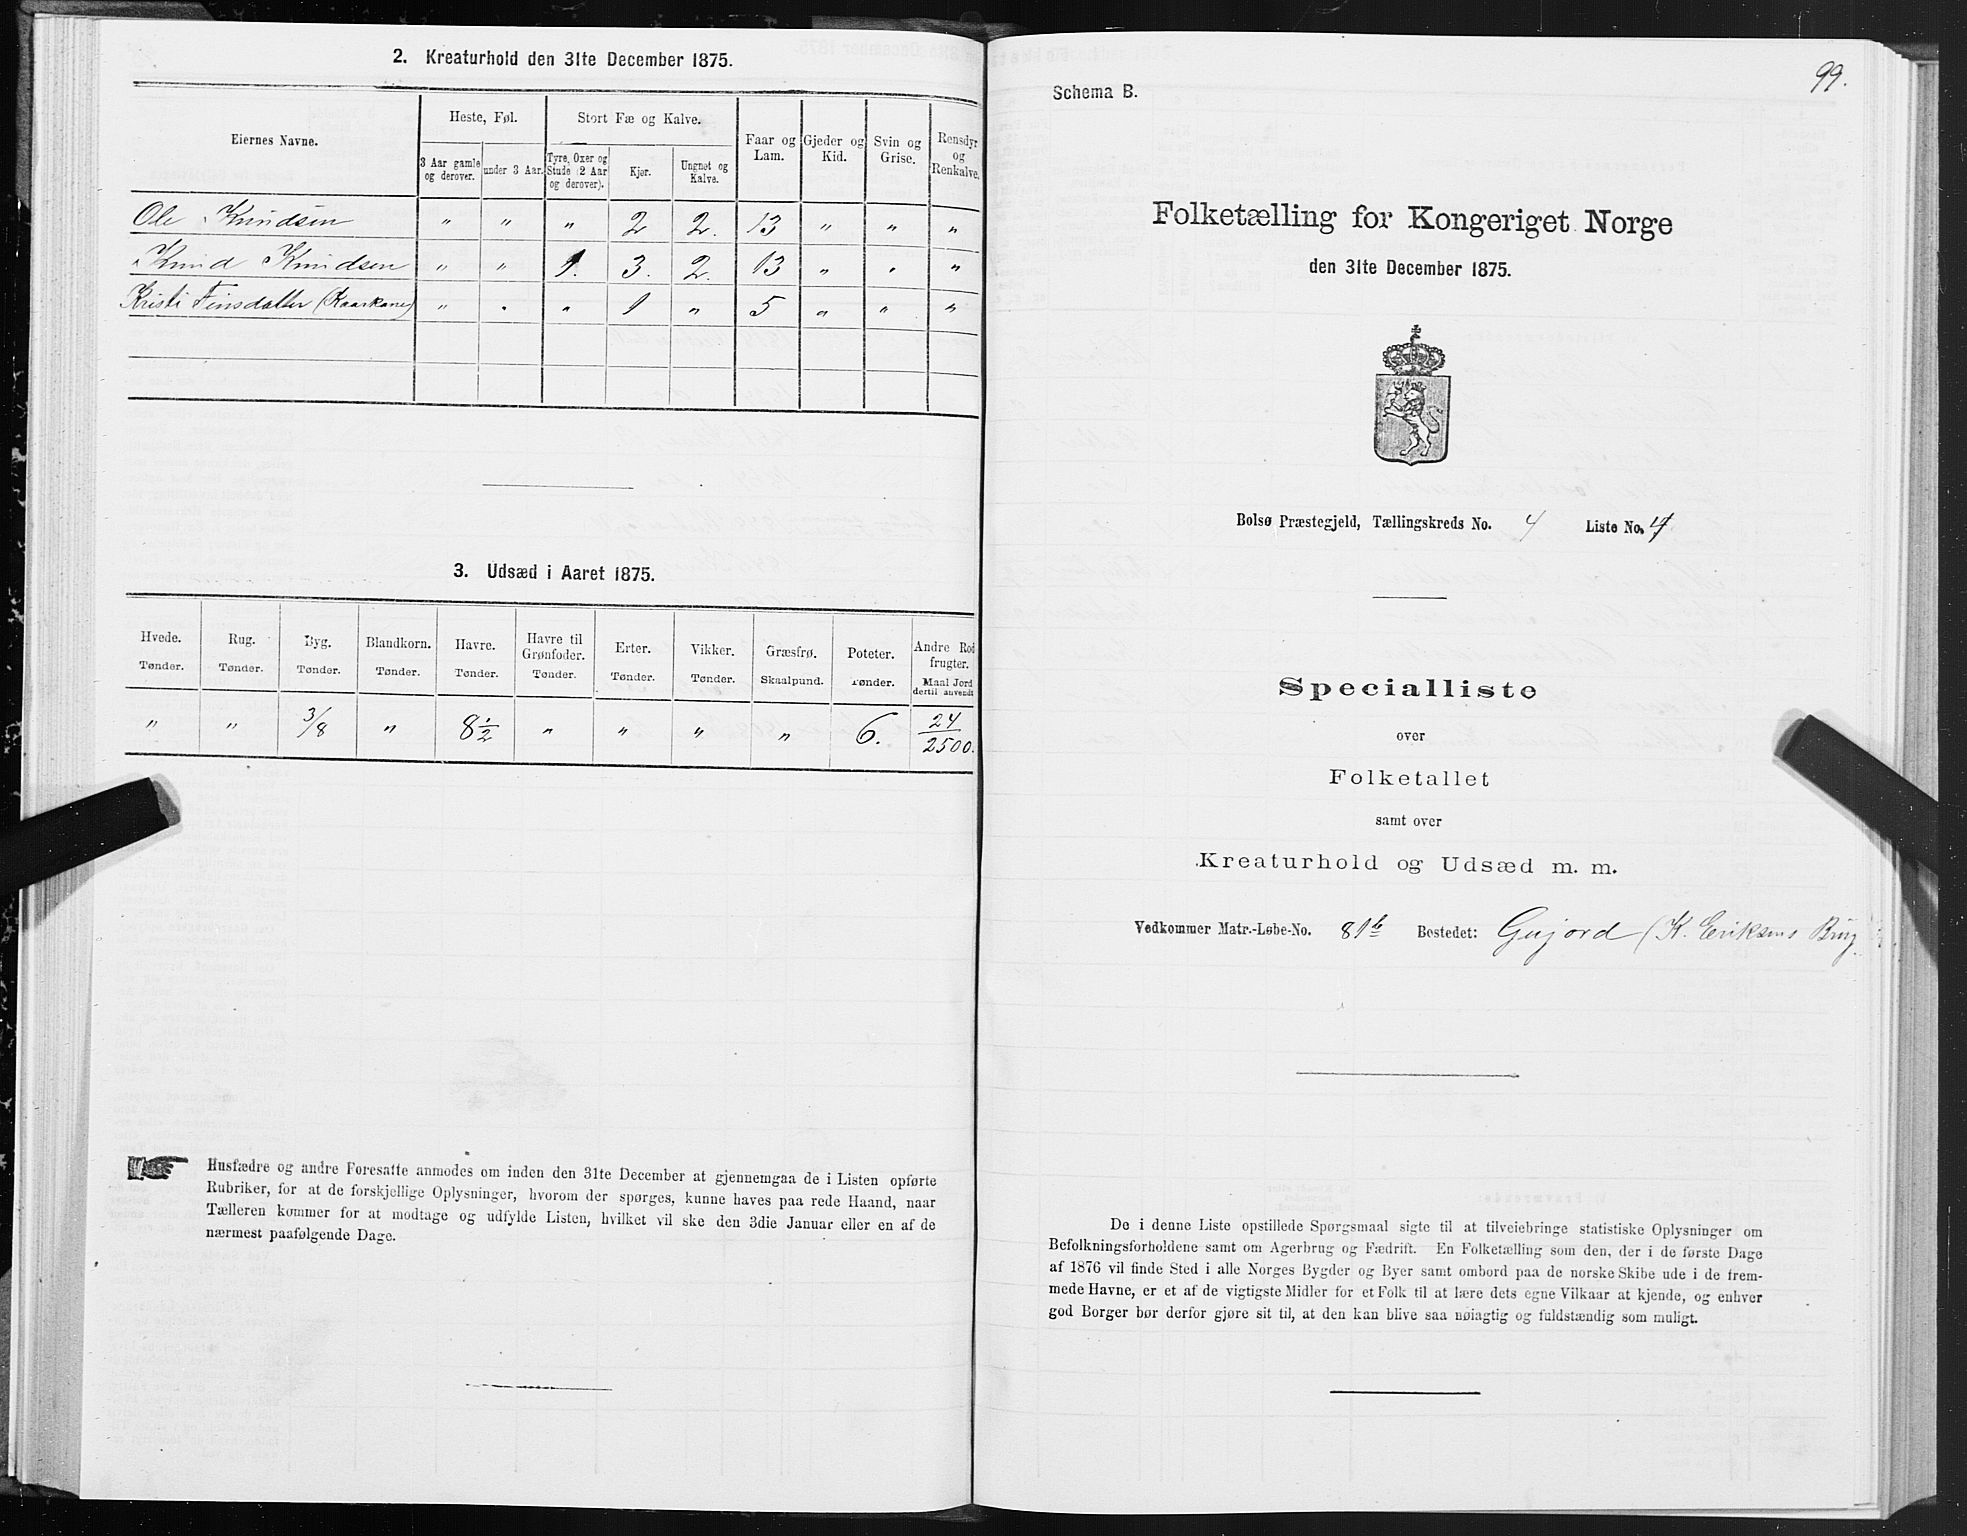 2. Kreaturhold den 31te December 1875.
Eiernes Navne. Heste, Føl. Stort Fæ og Kalve. Faar og Lam. Gjeder og Kid. Svin og Grise. Rensdyr og Renkalve.
3 Aar gamle og derover. under 3 Aar. Tyre, Oxer og Stude (2 Aar og derover). Kjør. Ungnøt og Kalve.
Ole Knudsen " " " 2 2. 13 " " "
Knud Knudsen " " 1. 3. 2. 13 " " "
Kristi Finsdatter (Kaarkone) " " " 1 " 5 " " "
3. Udsæd i Aaret 1875.
Hvede. Rug. Byg. Blandkorn. Havre. Havre til Grønfoder. Erter. Vikker. Græsfrø. Poteter. Andre Rodfrugter.
Tønder. Tønder. Tønder. Tønder. Tønder. Tønder. Tønder. Tønder. Skaalpund. Tønder. Maal Jord dertil anvendt
" " 3/8 " 8 1/2 " " " " 6. 24/2500.
Husfædre og andre Foresatte anmodes om inden den 31te December at gjennemgaa de i Listen opførte
Rubriker, for at de forskjellige Oplysninger, hvorom der spørges, kunne haves paa rede Haand, naar
Tælleren kommer for at modtage og udfylde Listen, hvilket vil ske den 3die Januar eller en af de
nærmest paafølgende Dage.
99.
Schema B.
Folketælling for Kongeriget Norge
den 31te December 1875.
Bolsø Præstegjeld, Tællingskreds No. 4 Liste No. 4
Specialliste
over
Folketallet
samt over
Kreaturhold og Udsæd m. m.
Vedkommer Matr.-Løbe-No. 81b Bostedet: Gujord (K. Eriksens Brug
De i denne Liste opstillede Spørgsmaal sigte til at tilveiebringe statistiske Oplysninger om
Befolkningsforholdene samt om Agerbrug og Fædrift. En Folketælling som den, der i de første Dage
af 1876 vil finde Sted i alle Norges Bygder og Byer samt ombord paa de norske Skibe ude i de frem-
mede Havne, er et af de vigtigste Midler for et Folk til at lære dets egne Vilkaar at kjende, og enhver
god Borger bør derfor gjøre sit til, at den kan blive saa nøiagtig og fuldstændig som muligt.